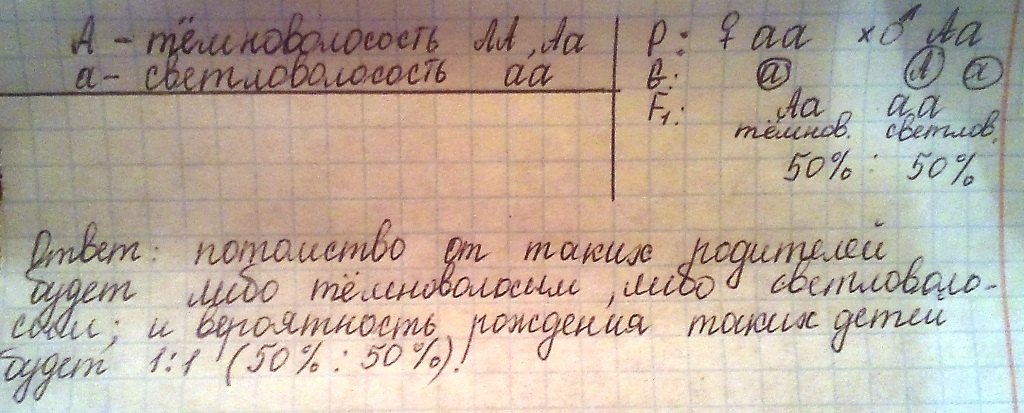 А - тёмноволосость АА, Аа
а - светловолосость аа
P: ♀ аа × ♂ Аа
G: а А а
F₁: Аа аа
тёмнов. светлов.
50% : 50%
Ответ: потомство от таких родителей
будет либо тёмноволосым, либо светловоло-
сым; и вероятность рождения таких детей
будет 1:1 (50% : 50%).